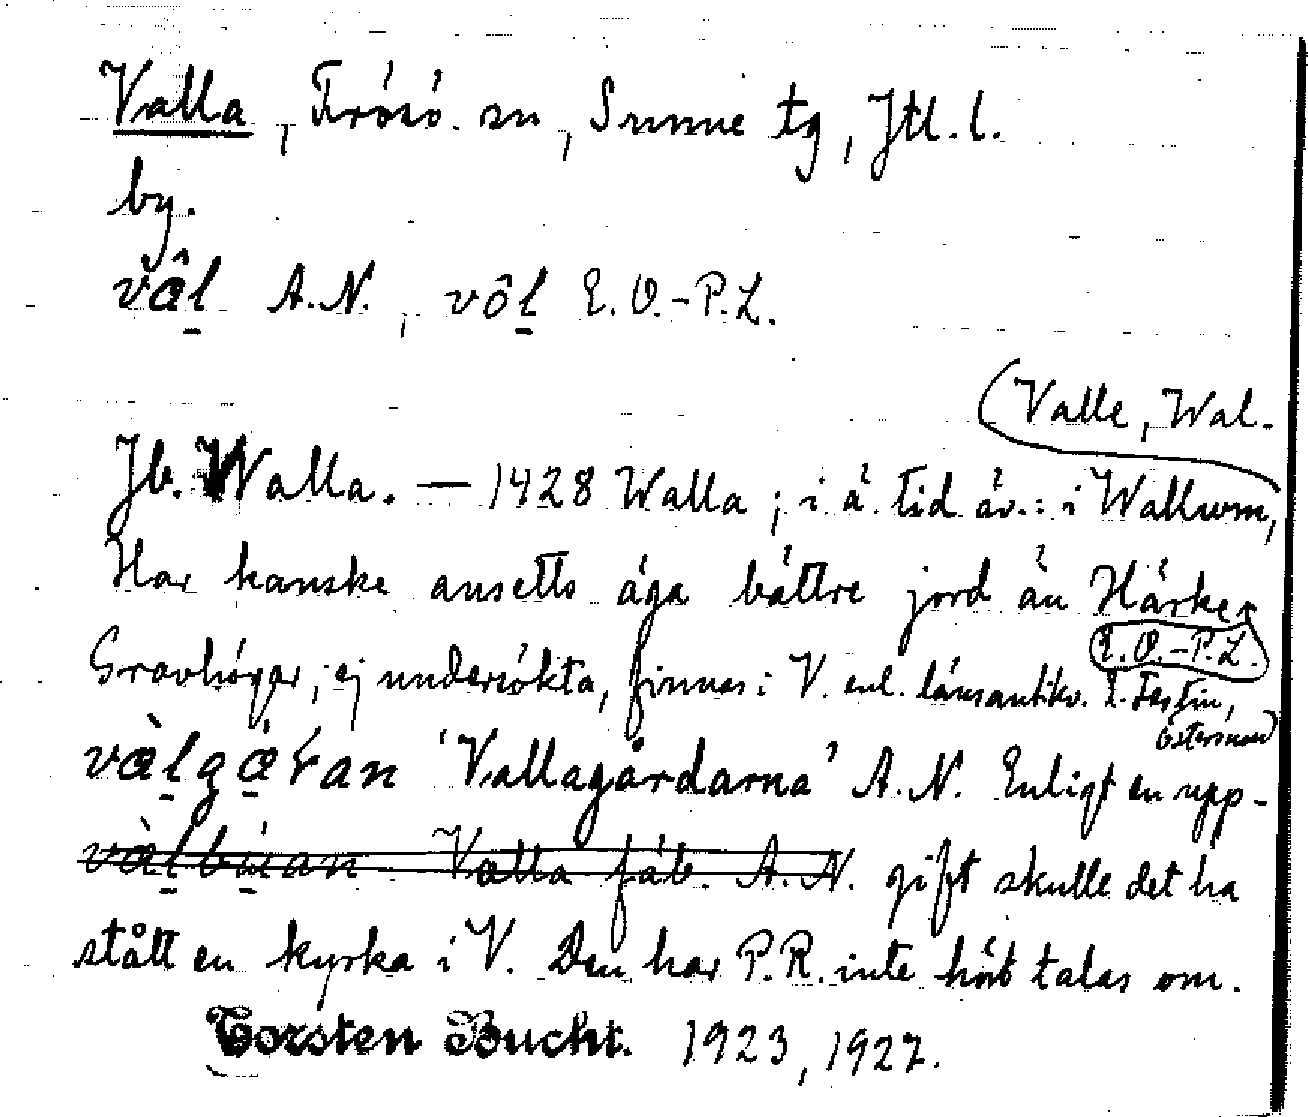 Valla, Frösö sn, Sunne tg, Jtl. l.
by.
vâḻ A.N., vôḻ E.O.-P.L.
(Valle, Wal.
Jb. Walla. — 1428 Walla; i ä. tid äv.: i Wallum,
Har kanske ansetts äga bättre jord än Härke,
E.O.-P.L.
Gravhögar, ej undersökta, finnas i V. enl. länsantikv. E. Festin,
Östersund
vàḻga̱ɼan 'Vallagårdarna' A.N. Enligt en upp-
vàḻbu̱an Valla fäb. A.N. gift skulle det ha
stått en kyrka i V. Den har P.R. inte hört talas om.
Torsten Bucht. 1923, 1927.